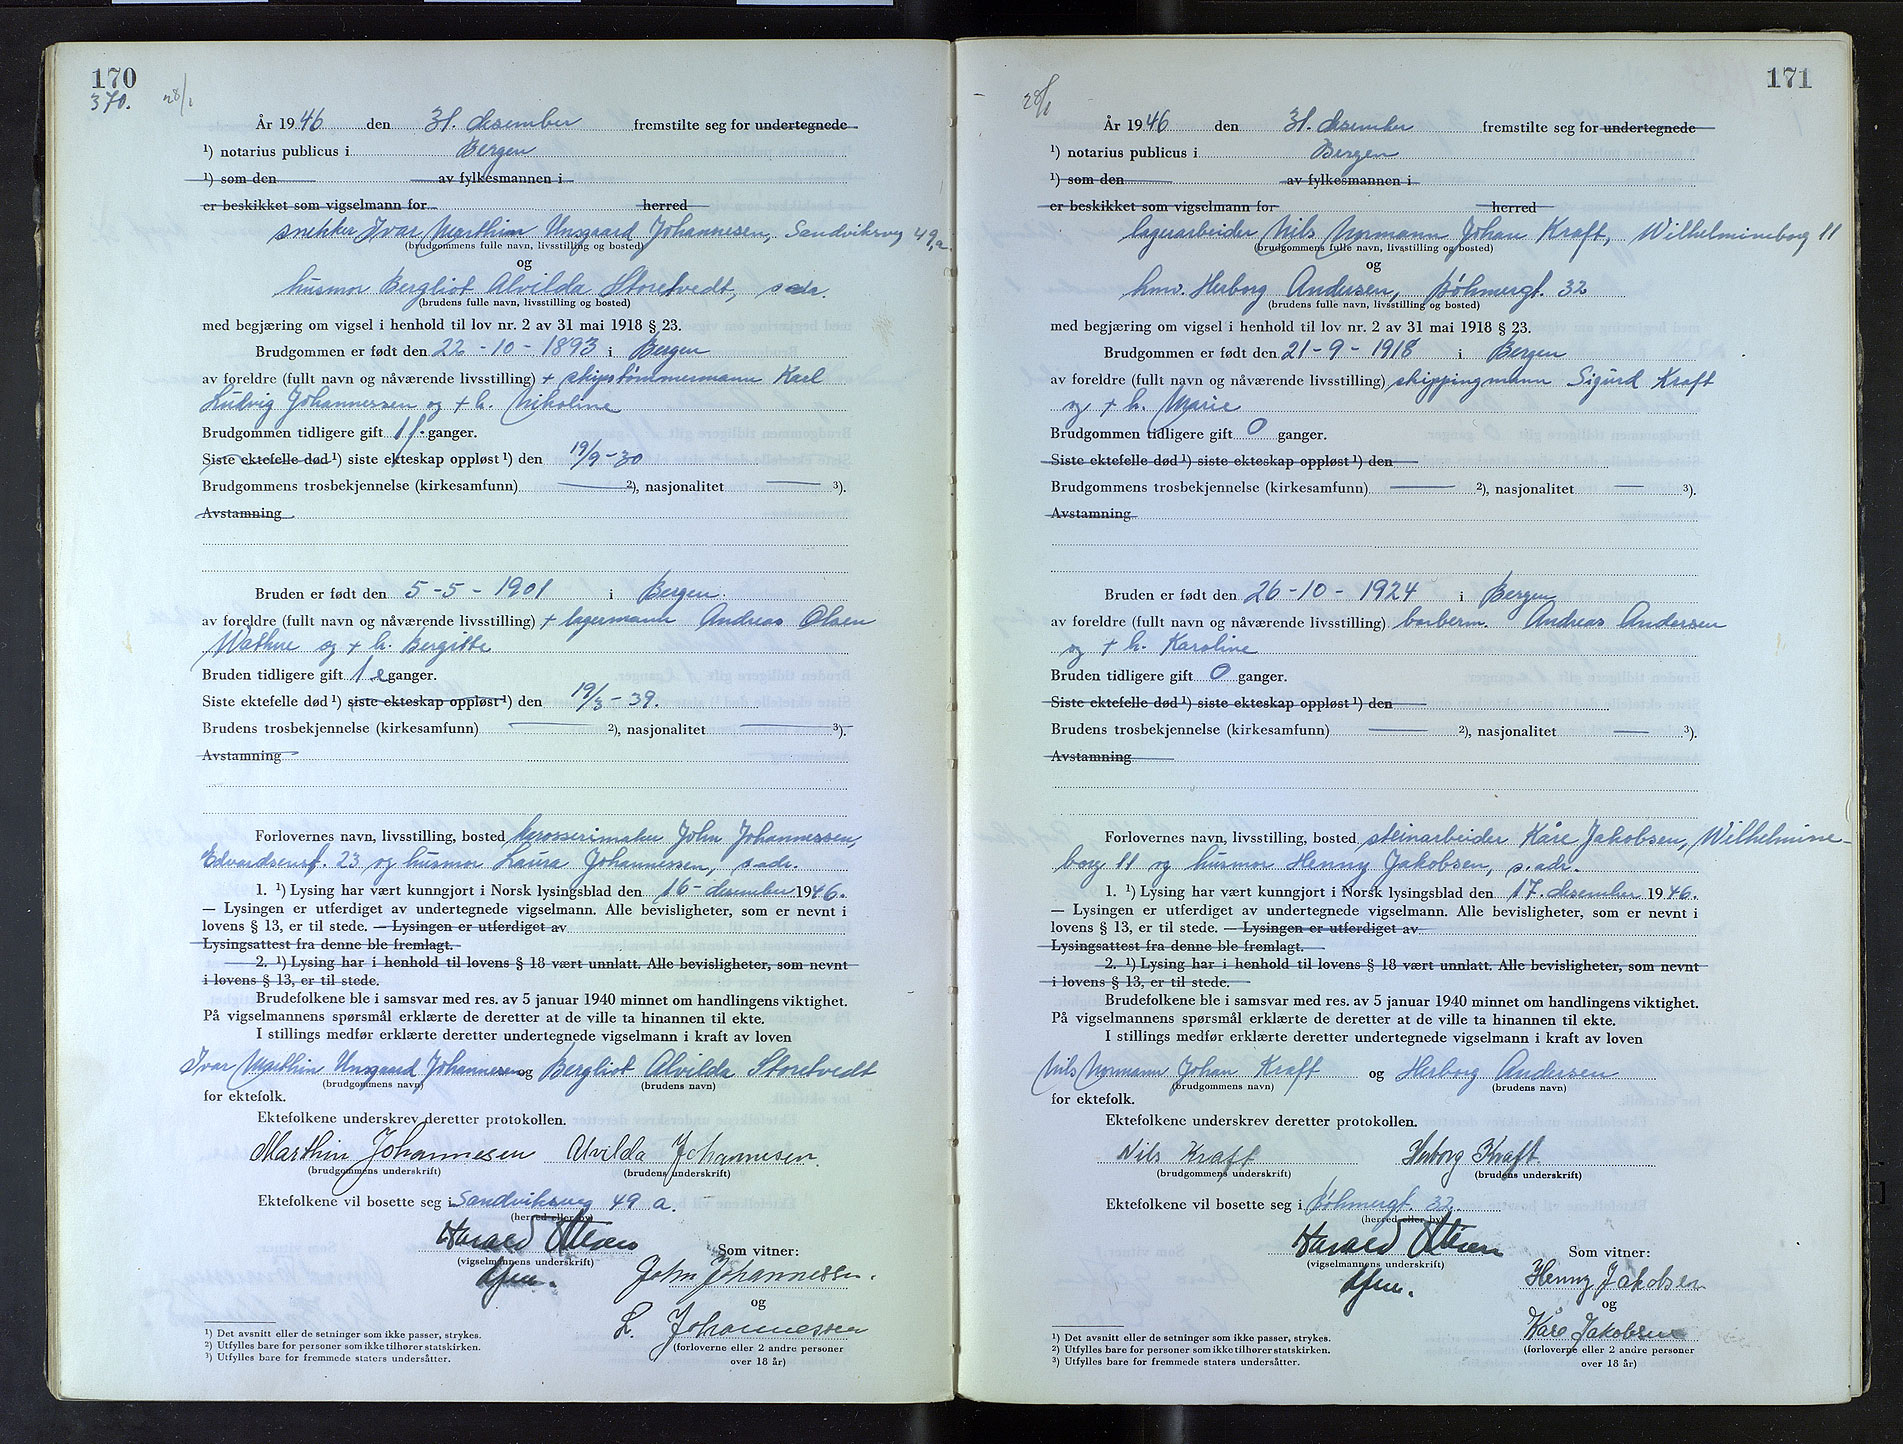 170
370. 28/1
År 1946 den 31. desember fremstilte seg for undertegnede
¹) notarius publicus i Bergen
¹) som den av fylkesmannen i
er beskikket som vigselmann for herred
snekker Ivar Marthin Unsgaard Johannesen, Sandviksveg 49, a
(brudgommens fulle navn, livsstilling og bosted)
og
husmor Bergliot Alvilda Storetvedt, s. adr.
(brudens fulle navn, livsstilling og bosted)
med begjæring om vigsel i henhold til lov nr. 2 av 31 mai 1918 § 23.
Brudgommen er født den 22-10-1893 i Bergen
av foreldre (fullt navn og nåværende livsstilling) + skipstømmermann Karl
Ludvig Johannessen og + h. Nikoline
Brudgommen tidligere gift 1 f. ganger.
Siste ektefelle død ¹) siste ekteskap oppløst ¹) den 19/9-30
Brudgommens trosbekjennelse (kirkesamfunn) — ²), nasjonalitet — ³).
Avstamning
Bruden er født den 5-5-1901 i Bergen.
av foreldre (fullt navn og nåværende livsstilling) + lagermann Andreas Olsen
Wathne og + h. Bergitte
Bruden tidligere gift 1 e ganger.
Siste ektefelle død ¹) siste ekteskap oppløst ¹) den 19/3-39.
Brudens trosbekjennelse (kirkesamfunn) — ²), nasjonalitet — ³).
Avstamning
Forlovernes navn, livsstilling, bosted karosserimaker John Johannessen,
Edvardsensgt. 23 og husmor Laura Johannessen, s. adr.
1. ¹) Lysing har vært kunngjort i Norsk lysingsblad den 16- desember 1946.
— Lysingen er utferdiget av undertegnede vigselmann. Alle bevisligheter, som er nevnt i
lovens § 13, er til stede. — Lysingen er utferdiget av
Lysingsattest fra denne ble fremlagt.
2. ¹) Lysing har i henhold til lovens § 18 vært unnlatt. Alle bevisligheter, som nevnt
i lovens § 13, er til stede.
Brudefolkene ble i samsvar med res. av 5 januar 1940 minnet om handlingens viktighet.
På vigselmannens spørsmål erklærte de deretter at de ville ta hinannen til ekte.
I stillings medfør erklærte deretter undertegnede vigselmann i kraft av loven
Ivar Marthin Unsgaard Johannesen og Bergliot Alvilda Storetvedt
(brudgommens navn) (brudens navn)
for ektefolk.
Ektefolkene underskrev deretter protokollen.
Marthin Johannesen Alvilda Johannesen.
(brudgommens underskrift) (brudens underskrift)
Ektefolkene vil bosette seg i Sandviksveg 49 a.
(herred eller by)
Harald
(vigselmannens underskrift) Som vitner:
John Johannessen.
og
L. Johannessen
(forloverne eller 2 andre personer
over 18 år)
¹) Det avsnitt eller de setninger som ikke passer, strykes.
²) Utfylles bare for personer som ikke tilhører statskirken.
³) Utfylles bare for fremmede staters undersåtter.
171
28/1
År 1946 den 31. desember fremstilte seg for undertegnede
¹) notarius publicus i Bergen
¹) som den av fylkesmannen i
er beskikket som vigselmann for herred
lagerarbeider Nils Normann Johan Kraft, Wilhelmineborg 11
(brudgommens fulle navn, livsstilling og bosted)
og
hmv. Herborg Andersen, Bøhmergt. 32
(brudens fulle navn, livsstilling og bosted)
med begjæring om vigsel i henhold til lov nr. 2 av 31 mai 1918 § 23.
Brudgommen er født den 21-9-1918 i Bergen
av foreldre (fullt navn og nåværende livsstilling) skippingmann Sigurd Kraft
og + h. Marie
Brudgommen tidligere gift 0 ganger.
Siste ektefelle død ¹) siste ekteskap oppløst ¹) den
Brudgommens trosbekjennelse (kirkesamfunn) — ²), nasjonalitet — ³).
Avstamning
Bruden er født den 26-10-1924 i Bergen
av foreldre (fullt navn og nåværende livsstilling) barberm. Andreas Andersen
og + h. Karoline
Bruden tidligere gift 0 ganger.
Siste ektefelle død ¹) siste ekteskap oppløst ¹) den
Brudens trosbekjennelse (kirkesamfunn) — ²), nasjonalitet — ³).
Avstamning
Forlovernes navn, livsstilling, bosted steinarbeider Kåre Jakobsen, Wilhelmine-
borg 11 og husmor Henny Jakobsen, s. adr.
1. ¹) Lysing har vært kunngjort i Norsk lysingsblad den 17. desember 1946.
— Lysingen er utferdiget av undertegnede vigselmann. Alle bevisligheter, som er nevnt i
lovens § 13, er til stede. — Lysingen er utferdiget av
Lysingsattest fra denne ble fremlagt.
2. ¹) Lysing har i henhold til lovens § 18 vært unnlatt. Alle bevisligheter, som nevnt
i lovens § 13, er til stede.
Brudefolkene ble i samsvar med res. av 5 januar 1940 minnet om handlingens viktighet.
På vigselmannens spørsmål erklærte de deretter at de ville ta hinannen til ekte.
I stillings medfør erklærte deretter undertegnede vigselmann i kraft av loven
Nils Normann Johan Kraft og Herborg Andersen
(brudgommens navn) (brudens navn)
for ektefolk.
Ektefolkene underskrev deretter protokollen.
Nils Kraft Herborg Kraft
(brudgommens underskrift) (brudens underskrift)
Ektefolkene vil bosette seg i Bøhmergt. 32.
(herred eller by)
Harald
(vigselmannens underskrift) Som vitner:
Henny Jakobsen
og
Kåre Jakobsen
(forloverne eller 2 andre personer
over 18 år)
¹) Det avsnitt eller de setninger som ikke passer, strykes.
²) Utfylles bare for personer som ikke tilhører statskirken.
³) Utfylles bare for fremmede staters undersåtter.